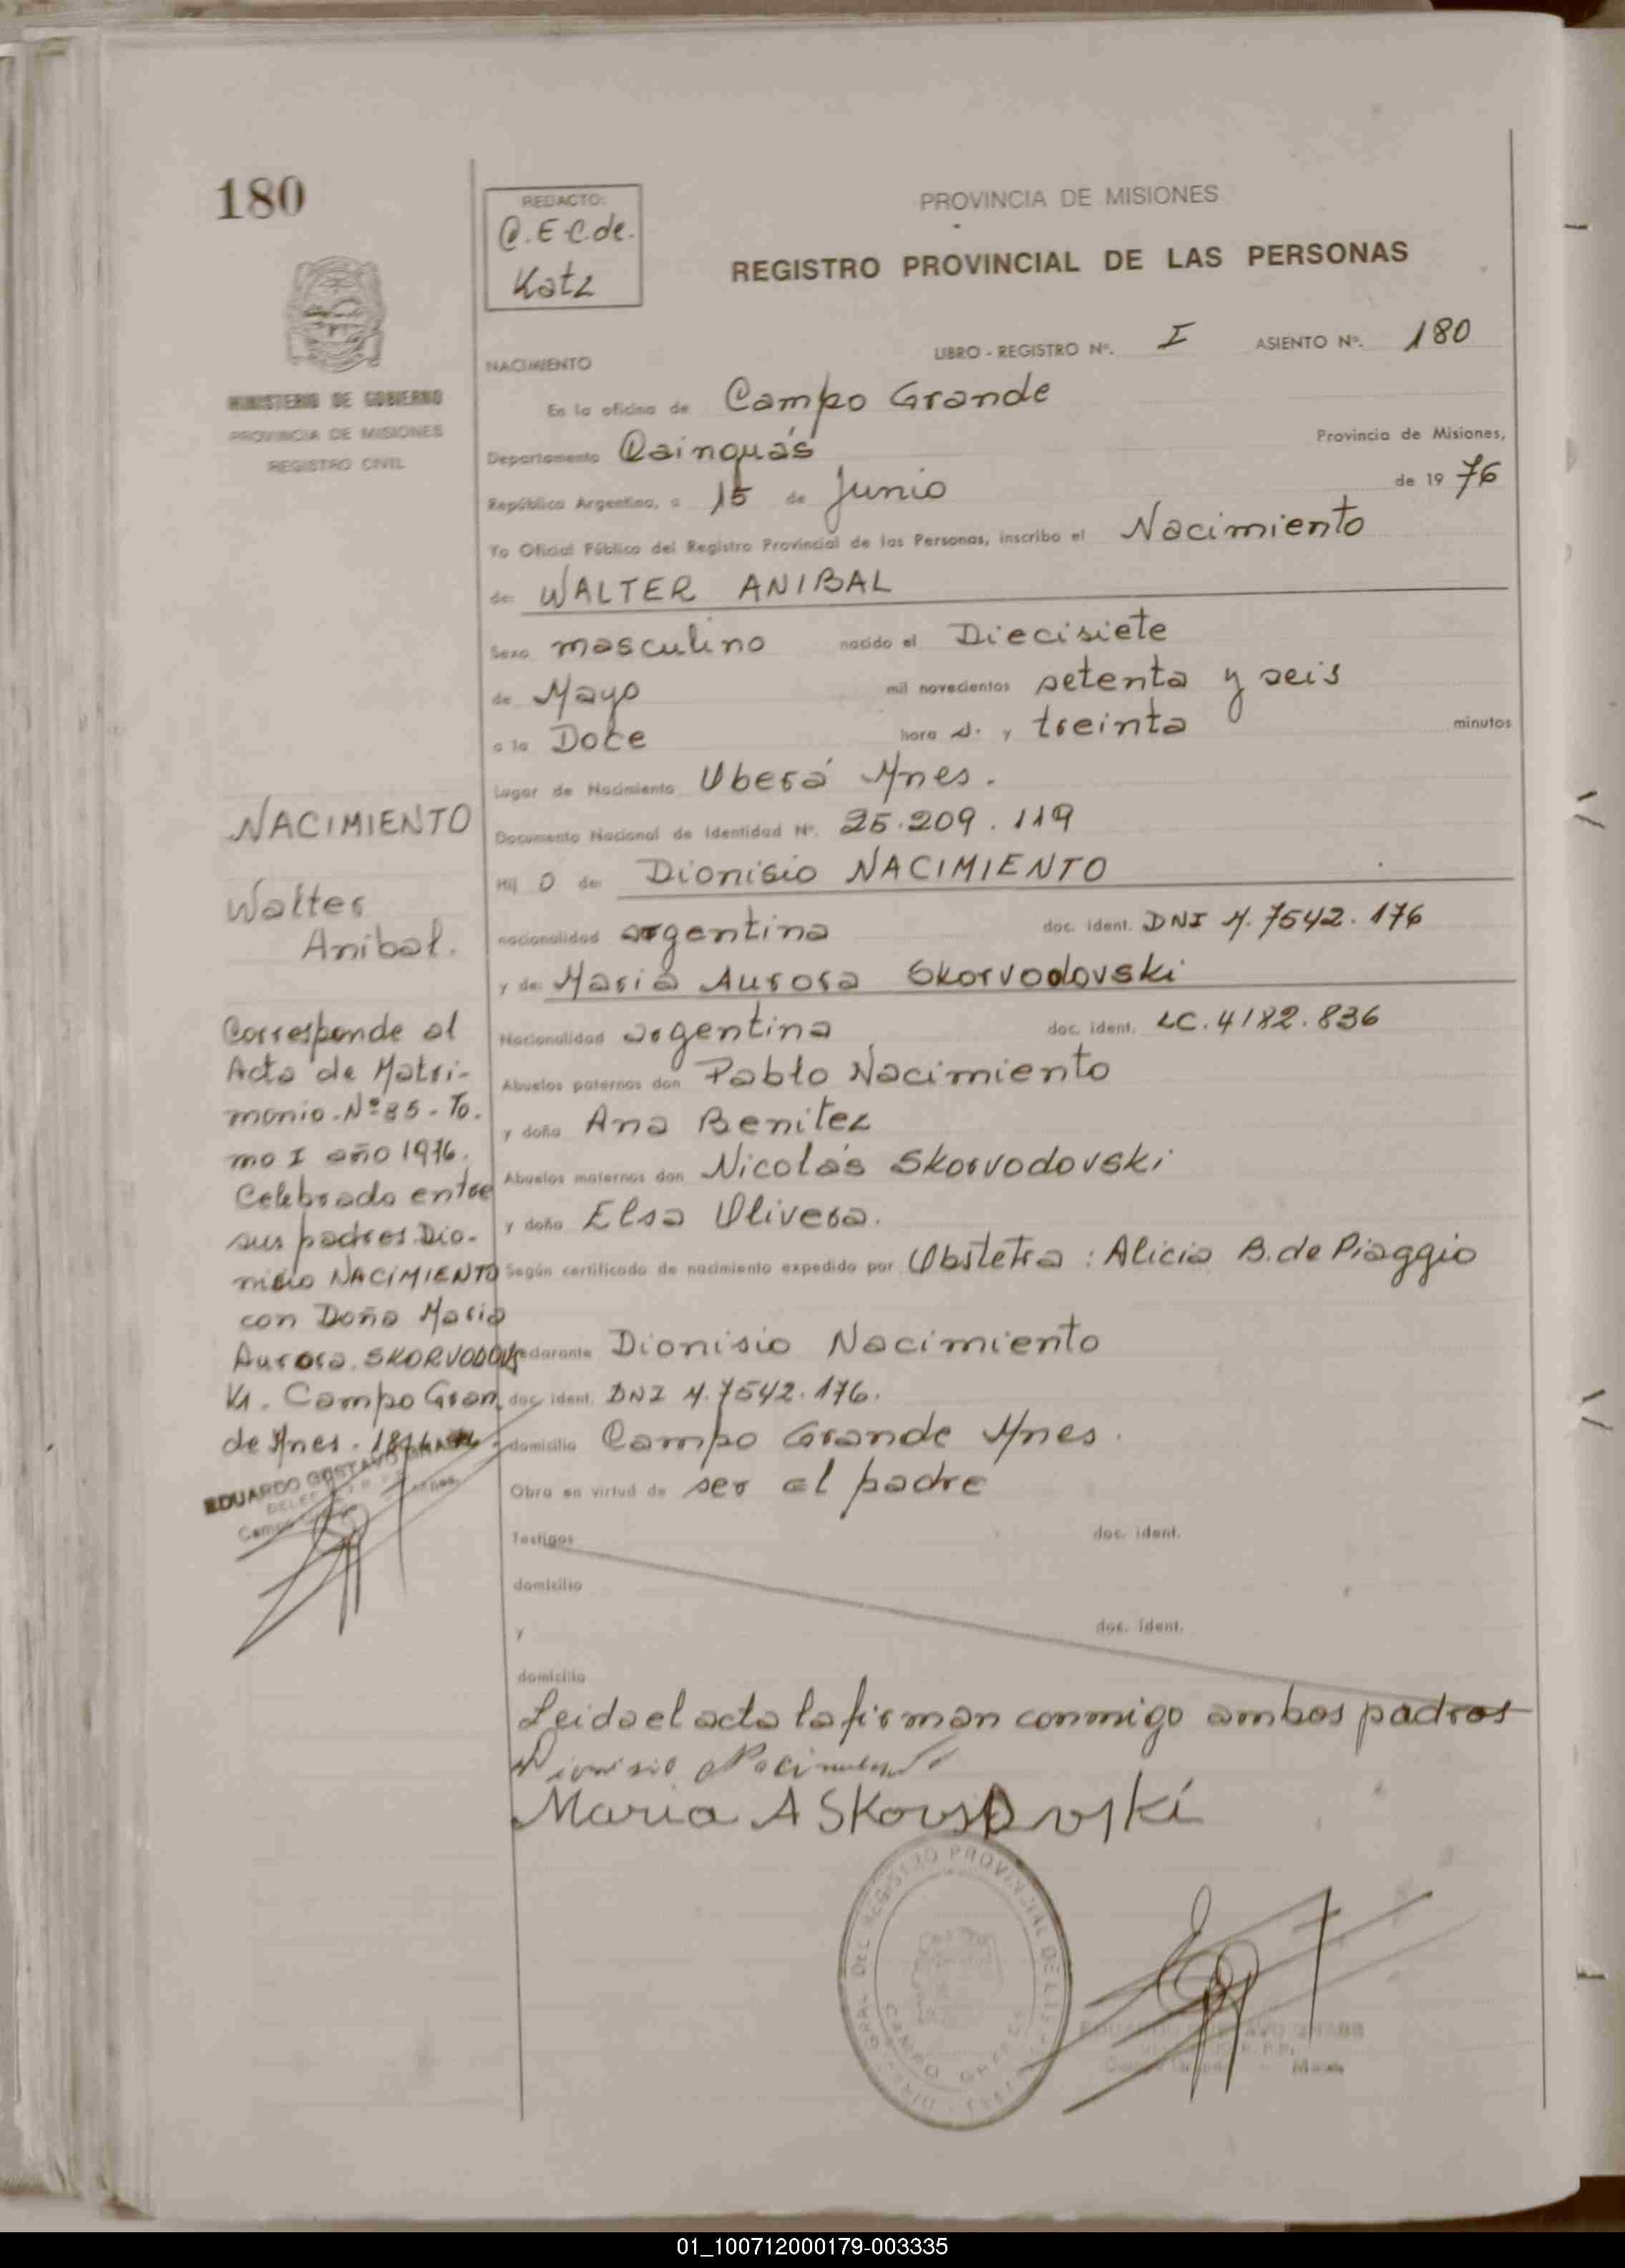 180
REDACTO:
C.E.C.de.
Katz
PROVINCIA DE MISIONES
REGISTRO PROVINCIAL DE LAS PERSONAS
MINISTERIO DE GOBIERNO
PROVINCIA DE MISIONES
REGISTRO CIVIL
NACIMIENTO
LIBRO - REGISTRO Nº. I ASIENTO Nº. 180
En la oficina de Campo Grande
Departamento Cainguás Provincia de Misiones,
República Argentina, a 15 de Junio de 19 76
Yo Oficial Público del Registro Provincial de las Personas, inscribo el Nacimiento
de: WALTER ANIBAL
Sexo masculino nacido el Diecisiete
de Mayo mil novecientos setenta y seis
a la Doce hora s. y treinta minutos
Lugar de Nacimiento Oberá Mnes.
Documento Nacional de Identidad Nº. 25.209.119
Hij o de: Dionisio NACIMIENTO
nacionalidad argentina doc. ident. DNI M. 7542.176
y de: Maria Aurora Skorvodovski
Nacionalidad argentina doc. ident. LC. 4182.836
Abuelos paternos don Pablo Nacimiento
y doña Ana Benitez
Abuelos maternos don Nicolás Skorvodovski
y doña Elsa Olivera.
Según certificado de nacimiento expedido por Obstetra: Alicia B. de Piaggio
Declarante Dionisio Nacimiento
doc. ident. DNI M. 7542.176.
domicilio Campo Grande Mnes.
Obra en virtud de ser el padre
Testigos doc. ident.
domicilio
y doc. ident.
domicilio
Leida el acta la firman conmigo ambos padres
Dionisio Nacimiento
Maria A Skorvodovski
NACIMIENTO
Walter
Anibal.
Corresponde al
Acta de Matri-
monio-Nº 85-To.
mo I año 1976.
Celebrado entre
sus padres Dio-
nisio NACIMIENTO
con Doña Maria
Aurora SKORVODOVS
Ki. Campo Gran
de Mnes.
EDUARDO GUSTAVO
DEL REGISTRO PROVINCIAL DE LAS
CAMPO GRANDE
01_100712000179-003335